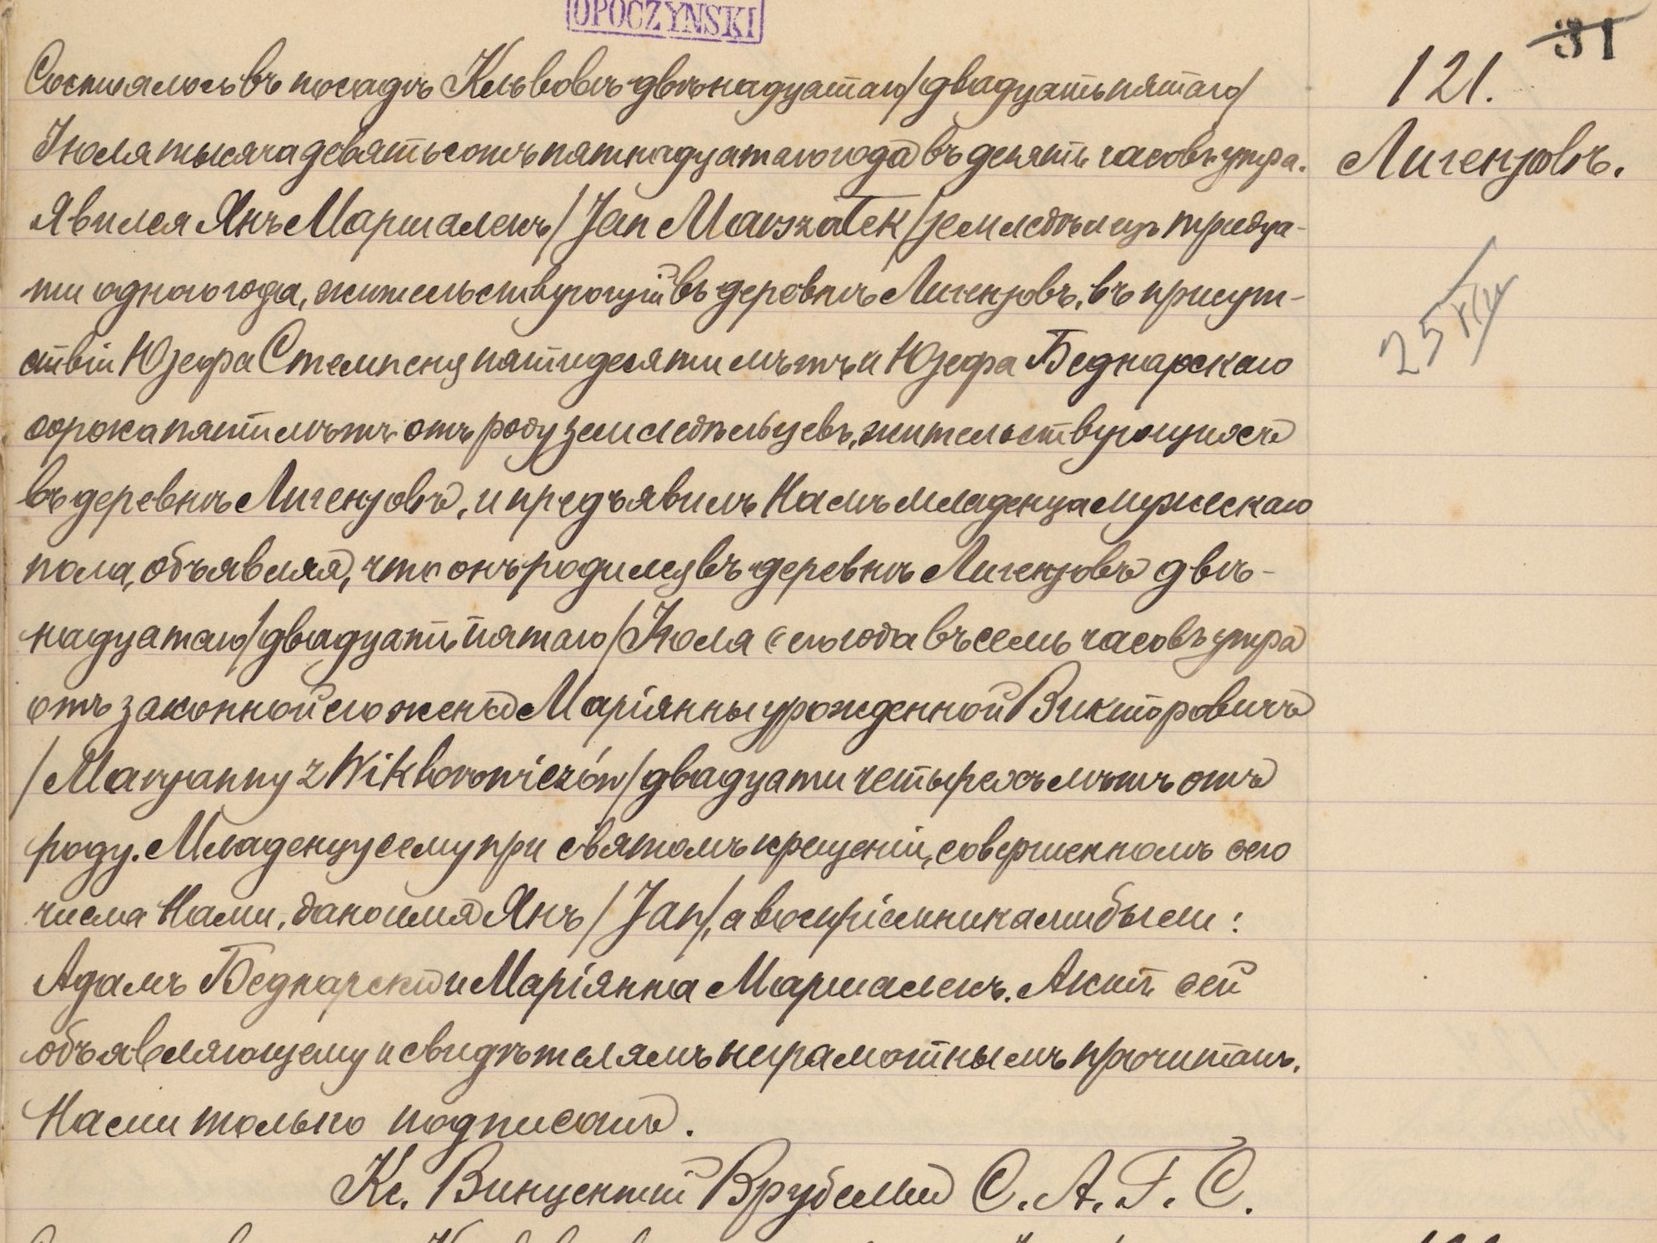 OPOCZYŃSKI
31
121.
Лигензовъ.
25 VII
Состоялось въ посадѣ Кльвовѣ двѣнадцатаго /двадцать пятаго/
Іюля тысяча девятьсотъ пятнадцатаго года въ десять часовъ утра.
Явился Янъ Маршалекъ /Jan Marszałek/ земледѣлецъ тридца-
ти одного года, жительствующій въ деревнѣ Лигензовъ, въ присут-
ствіи Юзефа Стемпеня пятидесяти лѣтъ и Юзефа Беднарскаго
сорока пяти лѣтъ отъ роду земледѣльцевъ, жительствующихъ
въ деревнѣ Лигензовъ, и предъявилъ Намъ младенца мужескаго
пола, объявляя, что онъ родился въ деревнѣ Лигензовъ двѣ-
надцатаго /двадцать пятаго/ Іюля сего года въ семь часовъ утра
отъ законной его жены Маріянны урожденной Викторовичъ
/Maryanny z Wiktorowiczów/ двадцати четырехъ лѣтъ отъ
роду. Младенцу сему при святомъ крещеніи, совершенномъ сего
числа Нами, дано имя Янъ /Jan/, а воспріемниками были:
Адамъ Беднарскій и Маріянна Маршалекъ. Актъ сей
объявляющему и свидѣтелямъ неграмотнымъ прочитанъ,
Нами только подписанъ.
Кс. Винцентій Врубелъ С. А. Г. С.